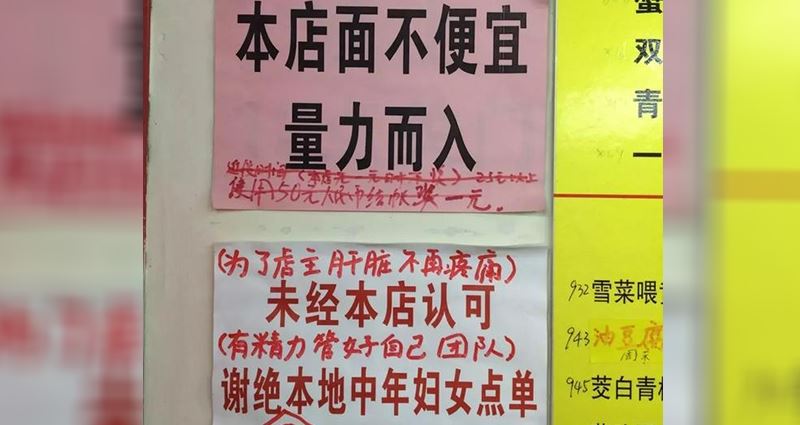 本店面不便宜
量力而入
使用50元人民币结帐 奖一元.
(为了店主肝脏不再疼痛)
未经本店认可
(有精力管好自己团队)
谢绝本地中年妇女点单
双
青
一
932雪菜喂
943油豆腐
945茭白青